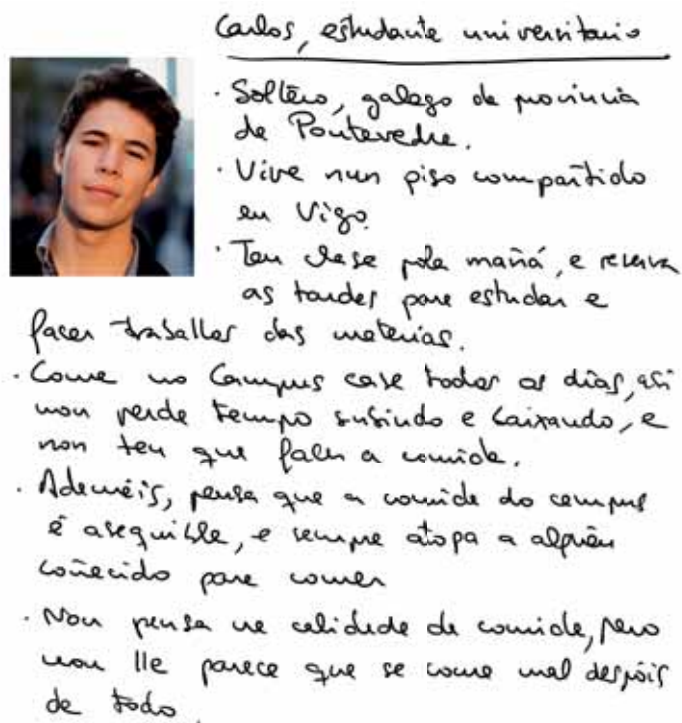 Carlos, estudante universitario
· Solteiro, galego da provincia
de Pontevedra.
· Vive nun piso compartido
en Vigo.
· Ten clase pola mañá, e reserva
as tardes para estudar e
facer traballos das materias.
· Come no Campus case todos os días, así
non perde tempo subindo e baixando, e
non ten que facer a comida.
· Ademáis, pensa que a comida do campus
é asequible, e sempre atopa a alguén
coñecido para comer
· Non pensa na calidade da comida, pero
non lle parece que se come mal despóis
de todo.